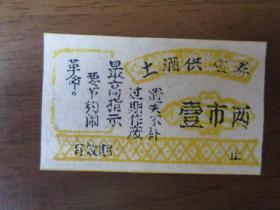 土酒供应券
壹市两
遗失不补
过期作废
最高指示
要节约闹
革命。
有效期
止